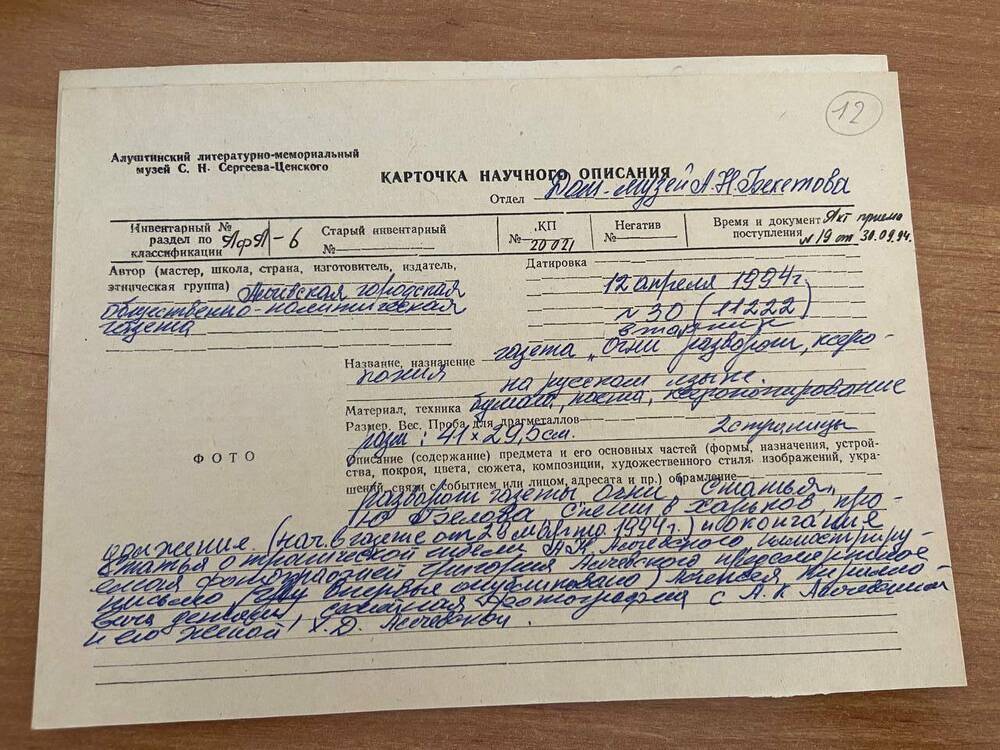 12
Алуштинский литературно-мемориальный
музей С. Н. Сергеева-Ценского
КАРТОЧКА НАУЧНОГО ОПИСАНИЯ
Отдел Дом-музей А.Н.Бекетова
Инвентарный №
раздел по
классификации АфА-6
Старый инвентарный
№
КП
№ 20021
Негатив
№
Время и документ
поступления Акт приема
№19 от 30.09.94.
Автор (мастер, школа, страна, изготовитель, издатель,
этническая группа) Алчевская городская
общественно-политическая
газета
Датировка
12 апреля 1994г.
№ 30 (11222)
вторник
Название, назначение газета „Огни разворот, ксеро-
копия на русском языке.
Материал, техника бумага, паста, ксерокопирование
Размер. Вес. Проба для драгметаллов
разм: 41×29,5см. 2 страницы
ФОТО
Описание (содержание) предмета и его основных частей (формы, назначения, устрой-
ства, покроя, цвета, сюжета, композиции, художественного стиля изображений, укра-
шений, связи с событием или лицом, адресата и пр.) обрамление
разворот газеты огни статья„
Ю Белова в Харьков, про-
должение. (нач. в газете от 1994г.) и окончание
Статья о трагической А.К Алчевского иллюстриру-
фотографией Григория Алчевского
письмо впервые опубликовано) Алексея Кирилло-
вича детям, фотография с А. К Алчевским
и его женой Х. Д. Алчевской.